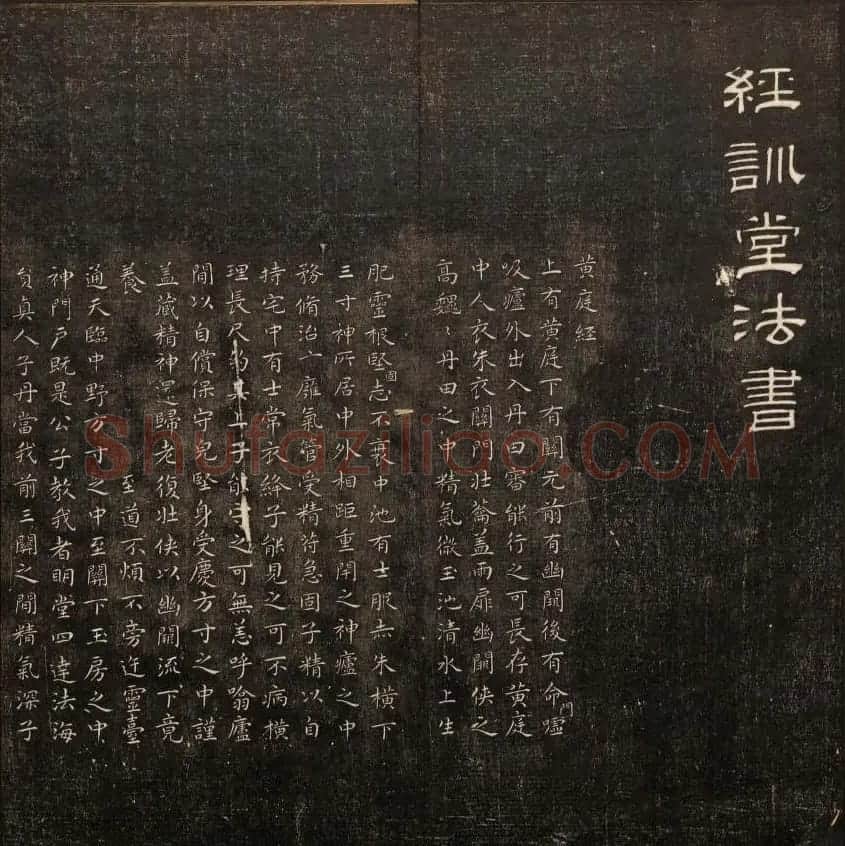 經訓堂法書
黃庭經
上有黃庭下有關元前有幽闕後有命門噓
吸廬外出入丹田審能行之可長存黃庭
中人衣朱衣關門壯籥蓋兩扉幽闕俠之
高魏〻丹田之中精氣微玉池清水上生
肥靈根堅固志不衰中池有士服赤朱橫下
三寸神所居中外相距重閉之神廬之中
務脩治玄廱氣管受精符急固子精以自
持宅中有士常衣絳子能見之可不病橫
理長尺約其上子能守之可無恙呼噏廬
間以自償保守皃堅身受慶方寸之中謹
蓋藏精神還歸老復壯俠以幽闕流下竟
養 至道不煩不旁迕靈臺
通天臨中野方寸之中至關下玉房之中
神門戶既是公子教我者明堂四達法海
負真人子丹當我前三關之間精氣深子
Shufaziliao.COM